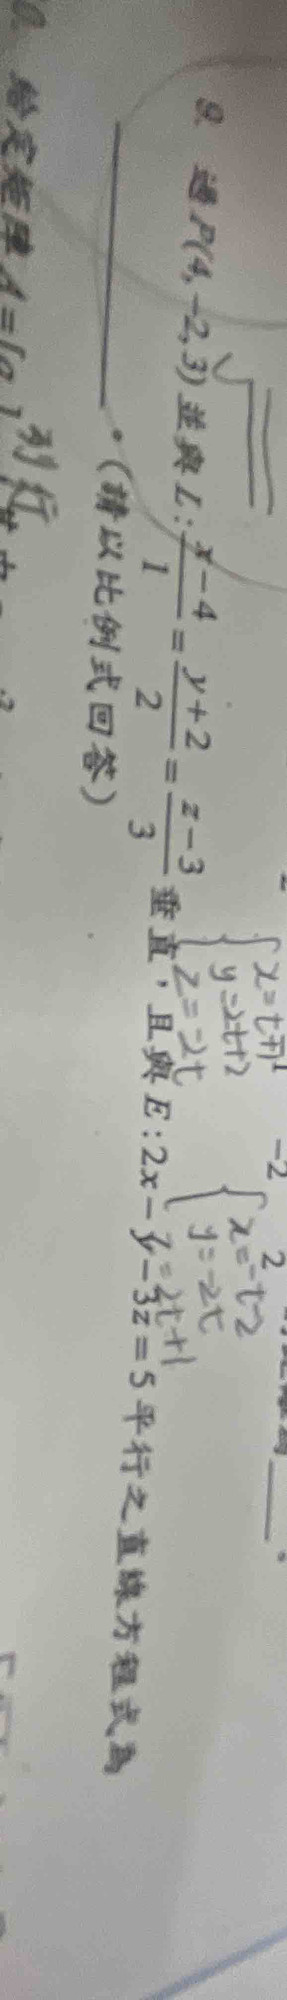 9. 過 P(4, -2, 3) 並與 L: x-4/1 = y+2/2 = z-3/3 垂直，且與 E: 2x - y - 3z = 5 平行之直線方程式為
______。(請以比例式回答)
{ x=-t-2
y=-2t
z=2t+1
y=2t+2
z=-2t
-2
2
列行
給定矩陣 A=[a